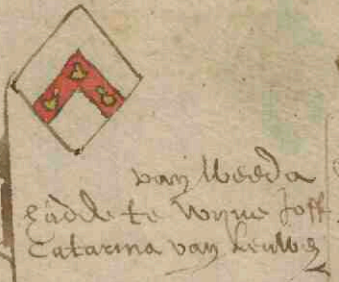 van Weeda
hadde te wyve Joff
Catarina van Leuwe